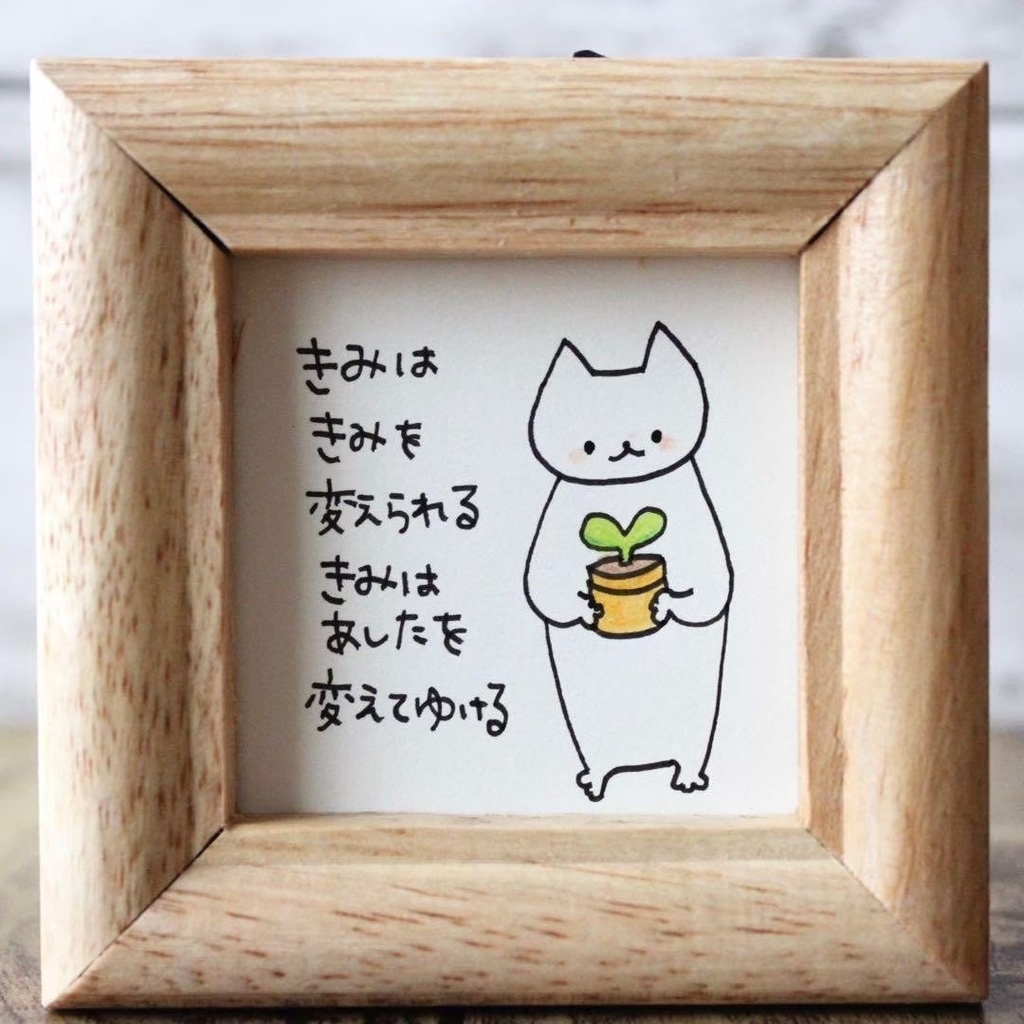 きみは
きみを
変えられる
きみは
あしたを
変えてゆける